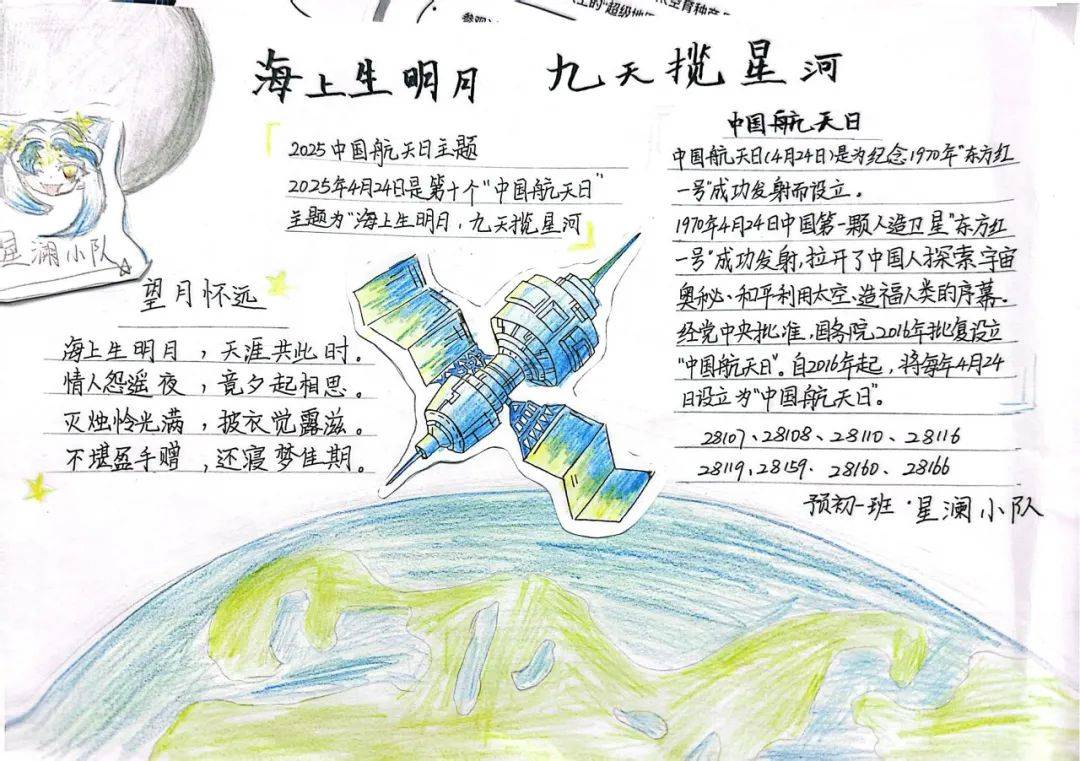 海上生明月 九天揽星河
2025中国航天日主题
2025年4月24日是第十个“中国航天日”
主题为“海上生明月，九天揽星河
中国航天日
中国航天日(4月24日)是为纪念1970年“东方红
一号”成功发射而设立。
1970年4月24日中国第一颗人造卫星“东方红
一号”成功发射，拉开了中国人探索宇宙
奥秘、和平利用太空、造福人类的序幕。
经党中央批准，国务院2016年批复设立
“中国航天日”。自2016年起，将每年4月24
日设立为“中国航天日”。
28107、28108、28110、28116
28119、28159、28160、28166
预初一班·星澜小队
星澜小队
望月怀远
海上生明月，天涯共此时。
情人怨遥夜，竟夕起相思。
灭烛怜光满，披衣觉露滋。
不堪盈手赠，还寝梦佳期。